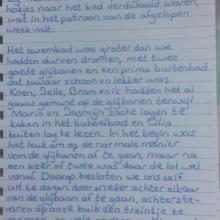 hokjes naar het bad verdwaald waren,
wat in het patroon van de afgelopen
week valt.
Het zwembad was groter dan we
hadden durven dromen, met twee
goede glijbanen en een prima buitenbad
dat zowaar schoon en lekker was.
Koen, Belle, Bram en ik hadden het al
gauw gemunt op de glijbanen terwijl
Maria en Jasmijn zacht lagen te
kaken in het bubbelbad en Cilia
buiten lag te lezen. In het begin was
het leuk om op de normale manier
van de glijbanen af te gaan, maar na
een keer of twee was daar de lol wel
vanaf. Daarop besloten we ons zelf
uit te dagen door sneller achter elkaar
van de glijbaan af te gaan, achterste-
voren op onze buik een treintje te